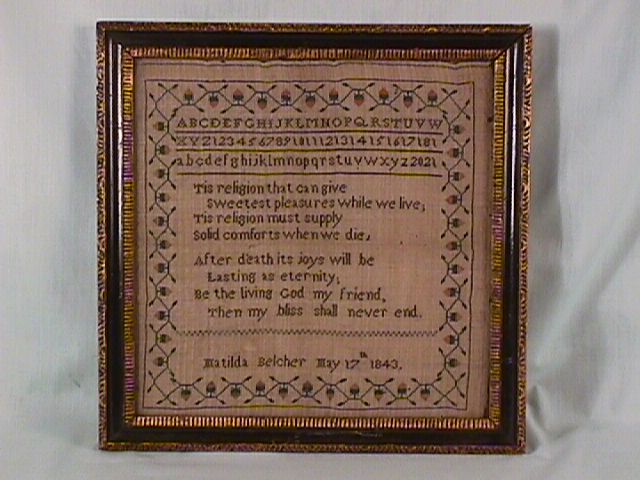 ABCDEFGHIJKLMNOPQRSTUVW
XYZ123456789101112131415161718
abcdefghijklmnopqrstuvwxyz2021
Tis religion that can give
Sweetest pleasures while we live;
Tis religion must supply
Solid comforts when we die,
After death its joys will be
Lasting as eternity;
Be the living God my friend,
Then my bliss shall never end.
Matilda Belcher May 17th 1843.